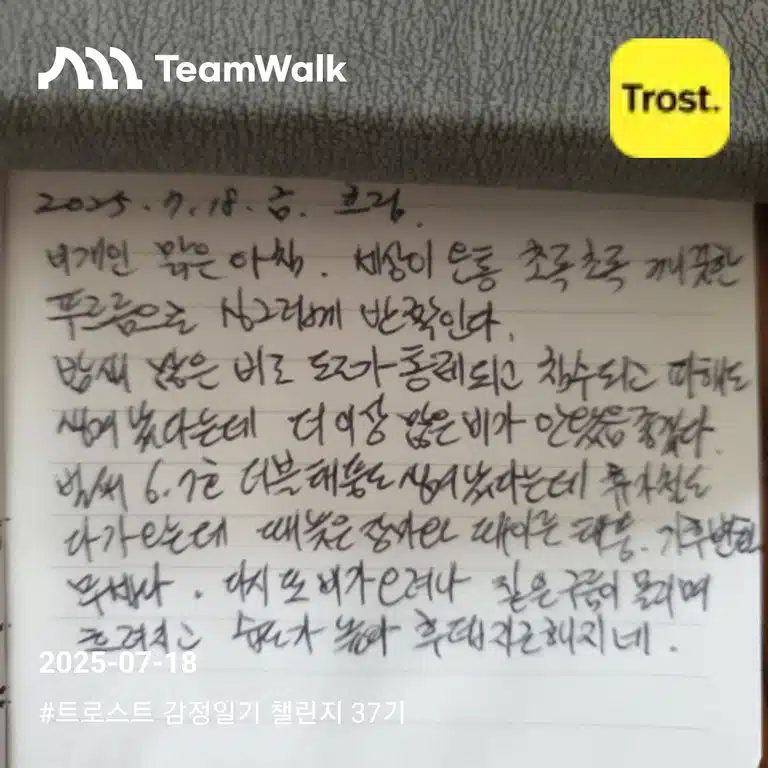 TeamWalk
Trost.
2025. 7. 18. 금. 흐림.
비개인 맑은 아침. 세상이 온통 초록초록 깨끗한
푸르름으로 싱그럽게 반짝인다.
밤새 많은 비로 도로가 통제되고 침수되고 피해도
생겨났다는데 더 이상 많은 비가 안왔음 좋겠다.
벌써 6. 7호 더블태풍도 생겨났다는데 휴가철도
다가오는데 때늦은 장마와 때이른 태풍. 기후변화
무섭다. 다시 또 비가 오려나 짙은 구름이 몰리며
흐려지고 습도가 높아 후덥지근해지네.
2025-07-18
#트로스트 감정일기 챌린지 37기